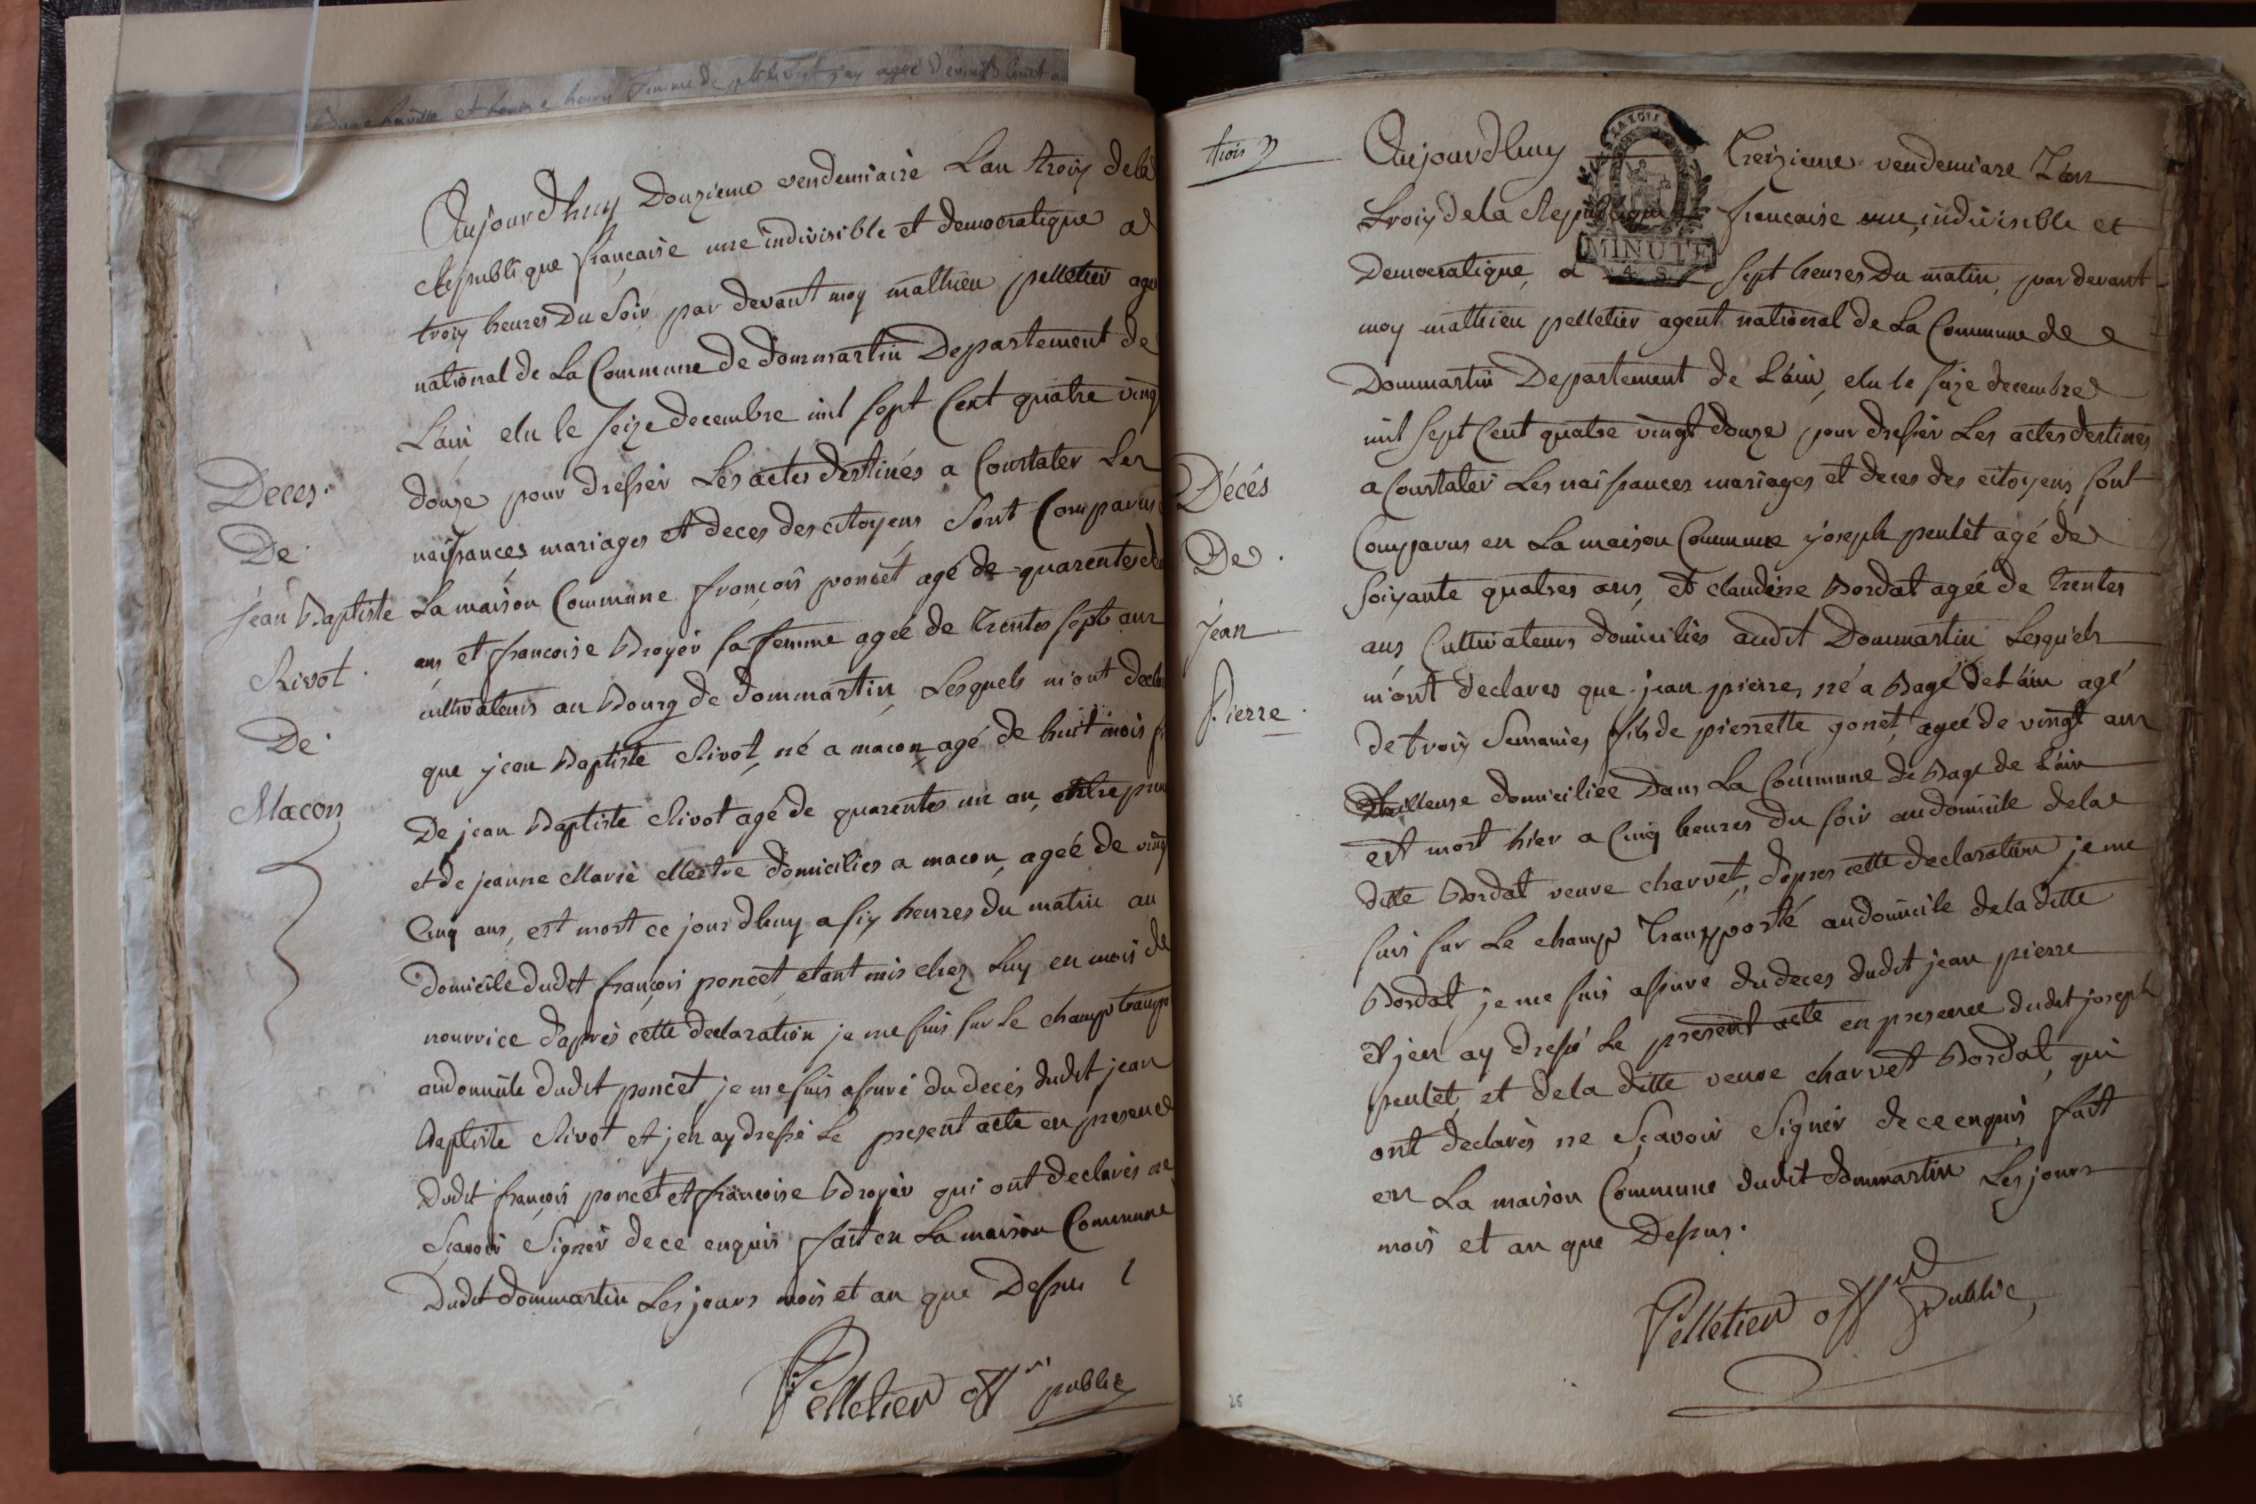 femme de
Aujourdhuy Douzieme vendemiaire Lan troix de la
Republique française une indivisible et democratique a
troix heures Du Soir par devant moy mathieu pelletier age
national de La Commune de dommartin Departement de
L'ain elu le seize decembre mil sept Cent quatre ving
douze pour dresser Les actes destinés a Constater Les
naissances mariages et deces des citoyens Sont Comparus
La maison Commune françois poncet agé de quarentes
ans et francoise Broyer sa femme ageé de trentes sept ans
cultivateurs au Bourg de dommartin Lesquels m'ont decla
que jean Baptiste Rivot né a macon agé de huit mois fi
De jean Baptiste Rivot agé de quarentes un an
et de jeanne Marie Mestre domicilies a macon ageé de ving
Cinq ans, est mort ce jourdhuy a six heures du matin au
domicile dudit françois poncet etant mis chez Luy en mois de
nourrice daprès cette declaration je me suis sur Le champ transp
audomicile dudit poncet je me suis assuré du decés dudit jean
Baptiste Rivot et j'en ay dressé Le present acte en presence
dudit françois poncet et françoise Broyer qui ont declarés ne
Sçavoir Signer de ce enquis fait en La maison Commune
Dudit dommartin Les jours mois et an que Dessus
Pelletier offr public
Deces
De
jean Baptiste
Rivot
De
Macon
trois
Aujourdhuy Treizieme vendemiare L'an
troix de la Republique française une, indivisible et
Democratique, a sept heures Du matin, par devant
MINUTE
4. S.
moy mathieu pelletier agent national de La Commune de
Dommartin Departement de L'ain, elu le saize decembre
mil sept Cent quatre vingt douze pour dresser Les actes destinés
a Constater Les naissances mariages et deces des citoyens sont
Comparus en La maison Commune joseph peulet agé de
soixante quatres ans, et claudine Bordat ageé de trentes
ans Cultivateurs domiciliés audit Dommartin Lesquels
m'ont declares que jean pierre, né a Bagé de L'ain agé
de troix Semanies fils de pierrette gonet, ageé de vingt ans
domiciliée Dans La Commune de Bage de L'ain
est mort hier a Cinq heures du soir audomicile de la
ditte Bordat veuve charvet, d'apres cette declaration je me
suis sur Le champ Transporté audomicile de la ditte
Bordat je me suis assure du deces dudit jean pierre
et j'en ay dressé Le present acte en presence dudit joseph
peulet, et de la ditte veuve charvet Bordat, qui
ont declarés ne Sçavoir Signer de ce enquis, fait
en La maison Commune dudit dommartin Les jours
mois et an que Dessus.
Pelletier off public
Décés
De
jean
Pierre
28